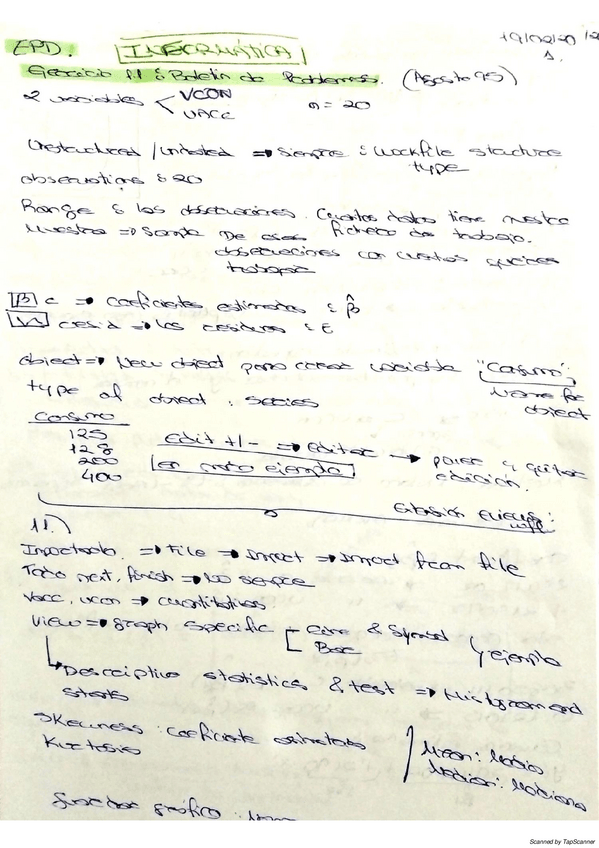 EPD. INFORMÁTICA 19/02/20
Ejercicio 11 : Boletín de Problemas. (Agosto 95)
2 variables VCON n = 20
VACC
Unstructured / Undated => siempre : workfile structure
type
observations : 20
Range : las observaciones. Cuantos datos tiene nuestro
Muestra => Sample De esas fichero de trabajo.
observaciones con cuantas quieres
trabajar
β c => coeficientes estimados : β̂
resid => los residuos : E
object => New object para crear variable "Consumo";
type of object : series Name for
object
Consumo
125 edit +/- => editar → poner y quitar
128 edición.
200 en modo ejemplo
400
Extensión Eviews:
wf1
11.)
Importarlo. => File => import => import from file
Todo next, finish => no siempre
Vacc, vcon => cuantitativas
View => graph specific Line & Symbol ejemplo
Bar
Descriptive statistics & test => Histogram and
stats
Skewness : coeficiente asimetría
Kurtosis Mean: Media
Median: Mediana
gráfico :
Scanned by TapScanner